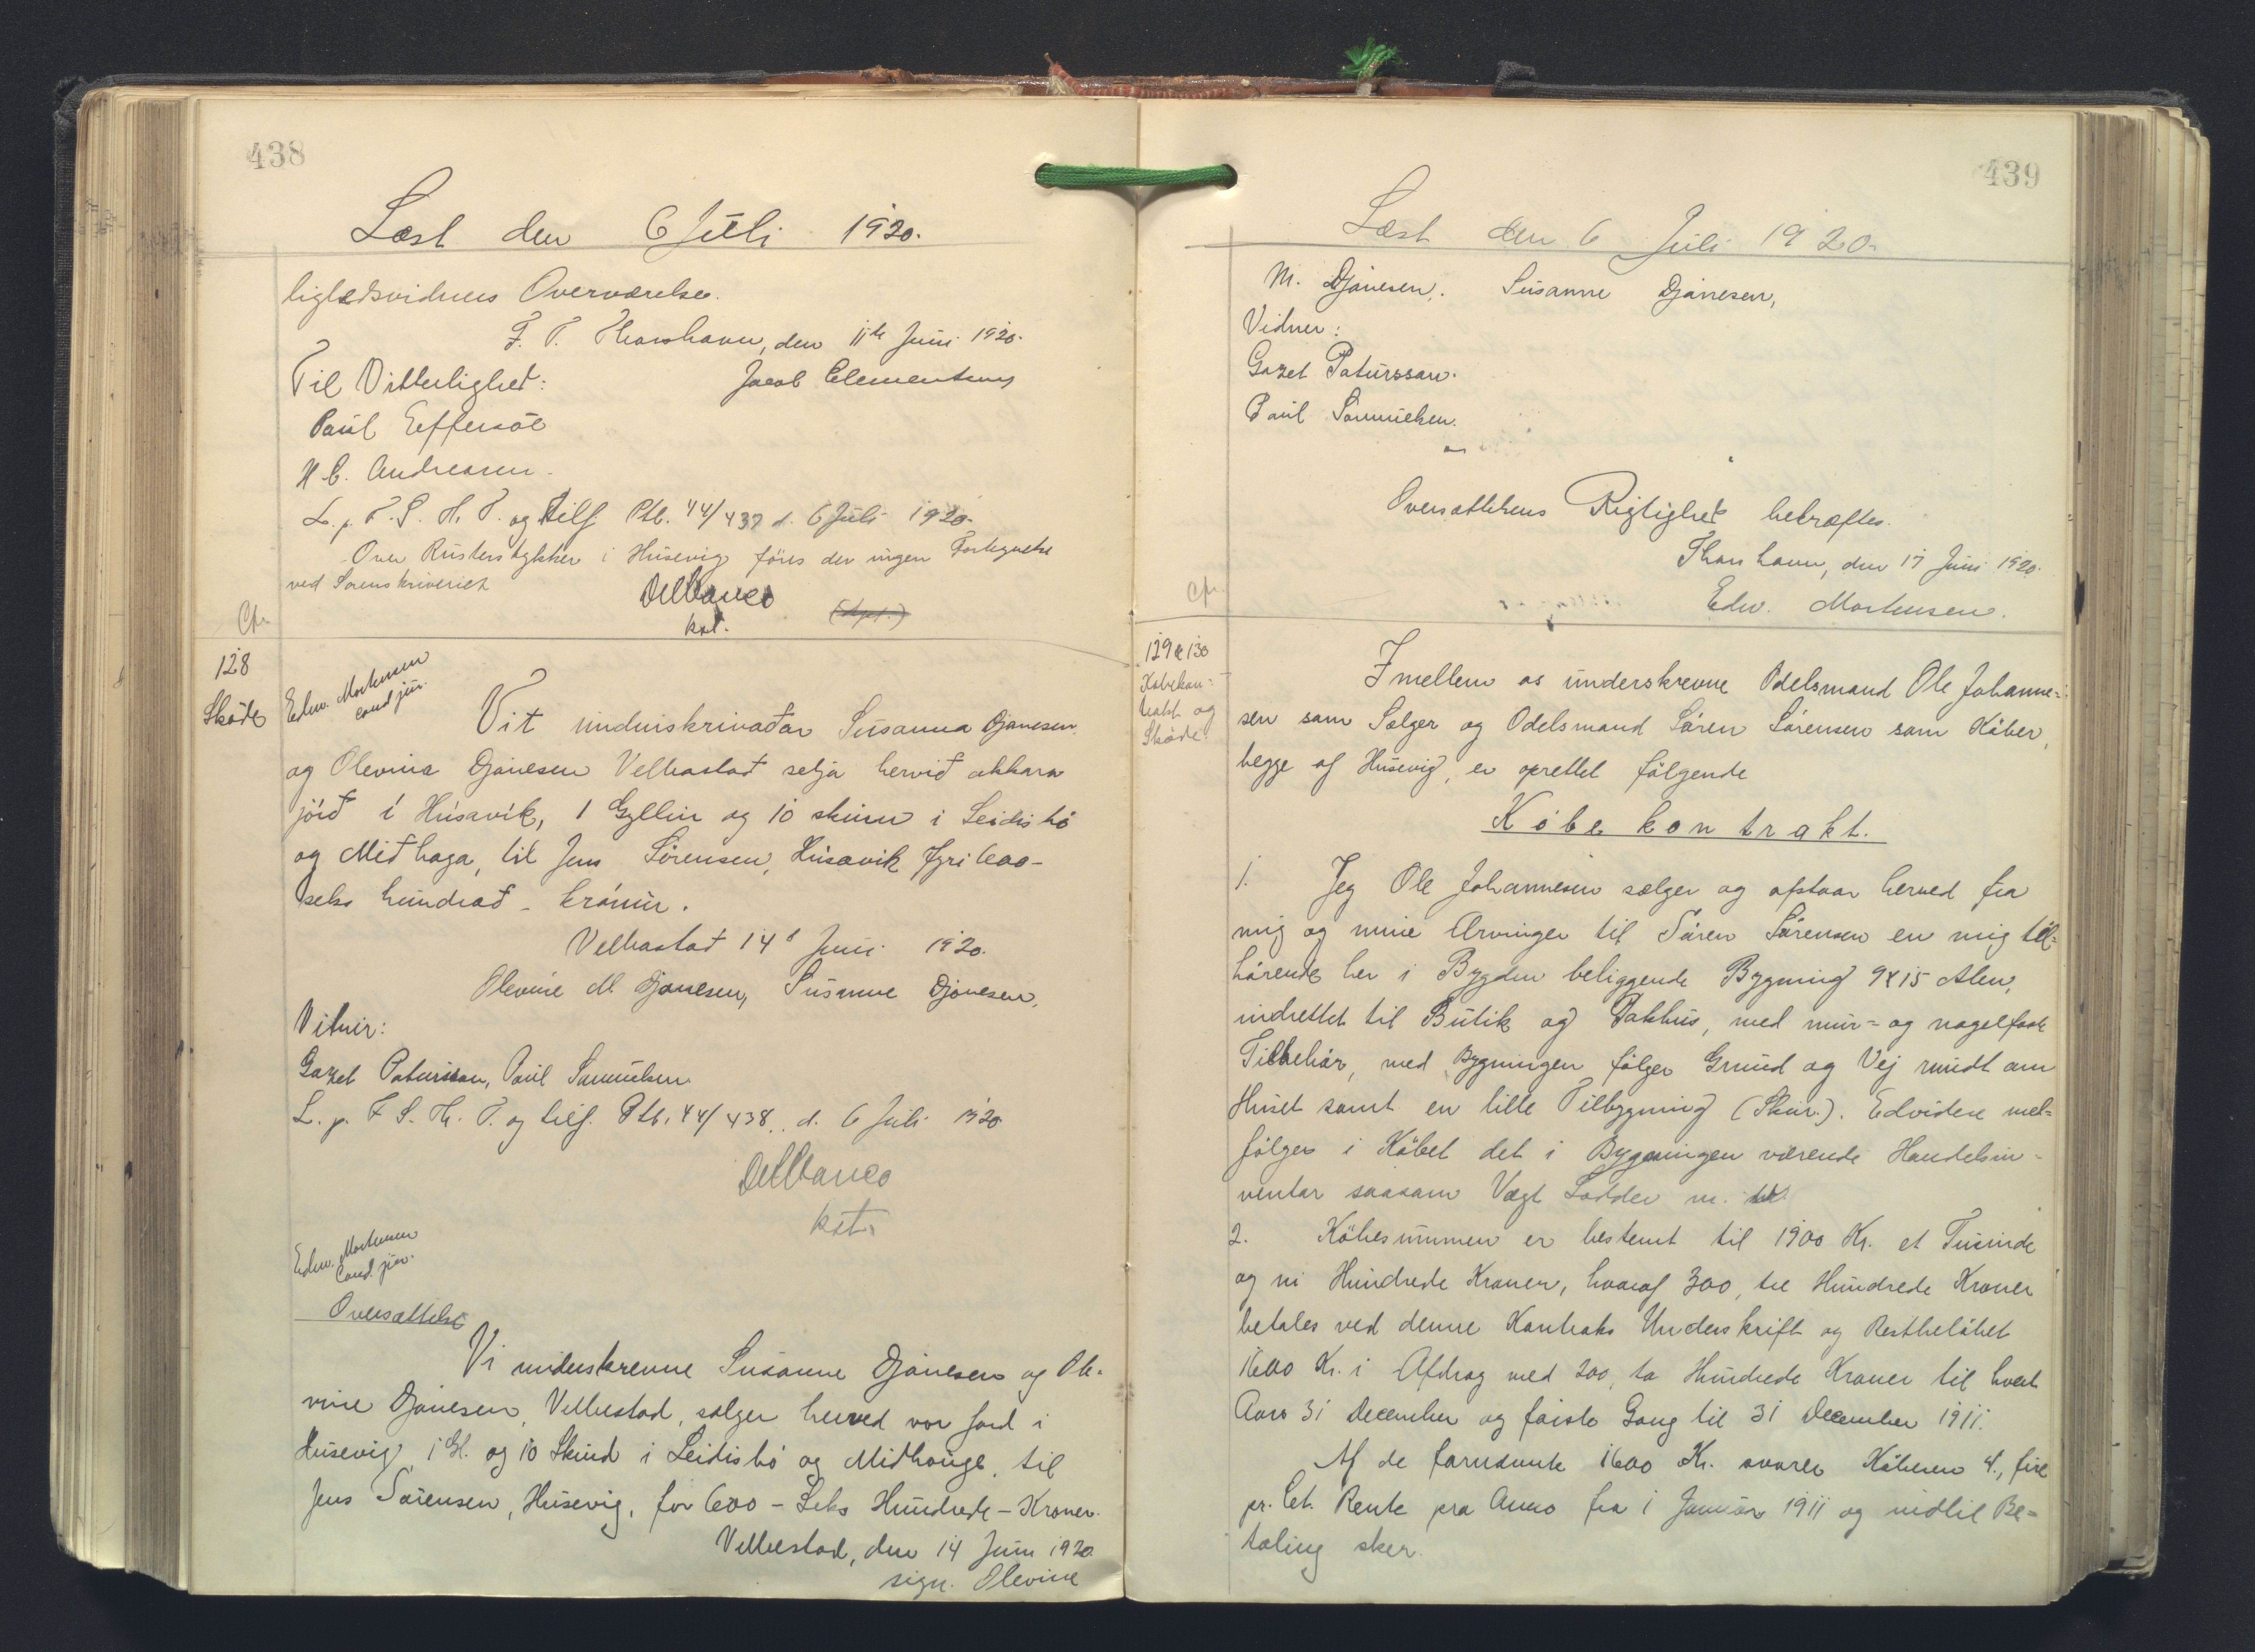 438
Læst den 6 Juli 1920.
lighedsvidners Overværelse.
F. T. Thorshavn, den 11te Juni 1920.
Til Vitterlighed: Jacob Clementsen
Paul Effersöe
H. C. Andreasen.
L. p. F. S. Th. T. og tilf. Ptb. 44/437 d. 6 Juli 1920.
Over Rusterstykker i Husevig föres der ingen Fortegnelse
ved Sorenskriveriet
Delbanco
kst.
Cfr.
128
Sköde
Edw. Mortensen
cand jur.
Vit undirskrivaðar Susanna Djonesen
og Olevina Djonesen Velbastað selja herviđ okkara
jörđ í Húsavík, 1 Gyllin og 10 skinn i Leidisbö
og Miđhaga, til Jens Sörensen, Húsavík fyri 600-
seks hundrađ - krónur.
Velbastađ 14d Juni 1920.
Olevine M Djonesen, Susanne Djonesen,
Vitnir:
Gazet Patursson, Paul Samuelsen
L. p. F S. Th. T. og tilf. Ptb. 44/438 d. 6 Juli 1920
Delbanco
kst.
Edw. Mortensen
Cand. jur.
Oversættelse
Vi underskrevne Susanne Djonesen og Ole=
vine Djonesen, Velbestad, sælger herved vor Jord i
Husevig, 1 Gl. og 10 Skind i Leidisbö og Midhauge, til
Jens Sörensen, Husevig, for 600 - Seks Hundrede - Kroner.
Velbestad, den 14 Juni 1920.
sign. Olevine
439
Læst den 6 Juli 1920.
M. Djonesen. Susanne Djonesen,
Vidner:
Gazet Patursson.
Paul Samuelsen.
Oversættelsens Rigtighed bekræftes.
Thorshavn, den 17 Juni 1920.
Edw. Mortensen.
Cfr.
129 & 130
Köbekon=
trakt og
Sköde.
Imellem os underskrevne Odelsmand Ole Johanne=
sen som Sælger og Odelsmand Sören Sörensen som Köber,
begge af Husevig, er oprettet fölgende
Köbekontrakt.
1. Jeg Ole Johannesen sælger og afstaar herved fra
mig og mine Arvinger til Sören Sörensen en mig til=
hörende her i Bygden beliggende Bygning 9x15 Alen,
indrettet til Butik og Pakhus, med mur= og nagelfast
Tilbehör, med Bygningen fölger Grund og Vej rundt om
Huset samt en lille Tilbygning (Skur). Edvidere med=
fölger i Köbet det i Bygningen værende Handelsin=
ventar saasom Vægt Lodder m.
2. Köbesummen er bestemt til 1900 Kr. et Tusinde
og ni Hundrede Kroner, hvoraf 300, tre Hundrede Kroner
betales ved denne Kontrakts Underskrift og Restbelöbet
1600 Kr. i Afdrag med 200, to Hundrede Kroner til hvert
Aars 31 December og förste Gang til 31 December 1911.
Af de fornævnte 1600 Kr. svarer Köberen 4., fire
pr. Ct. Rente pro Anno fra 1 Januar 1911 og indtil Be=
taling sker.